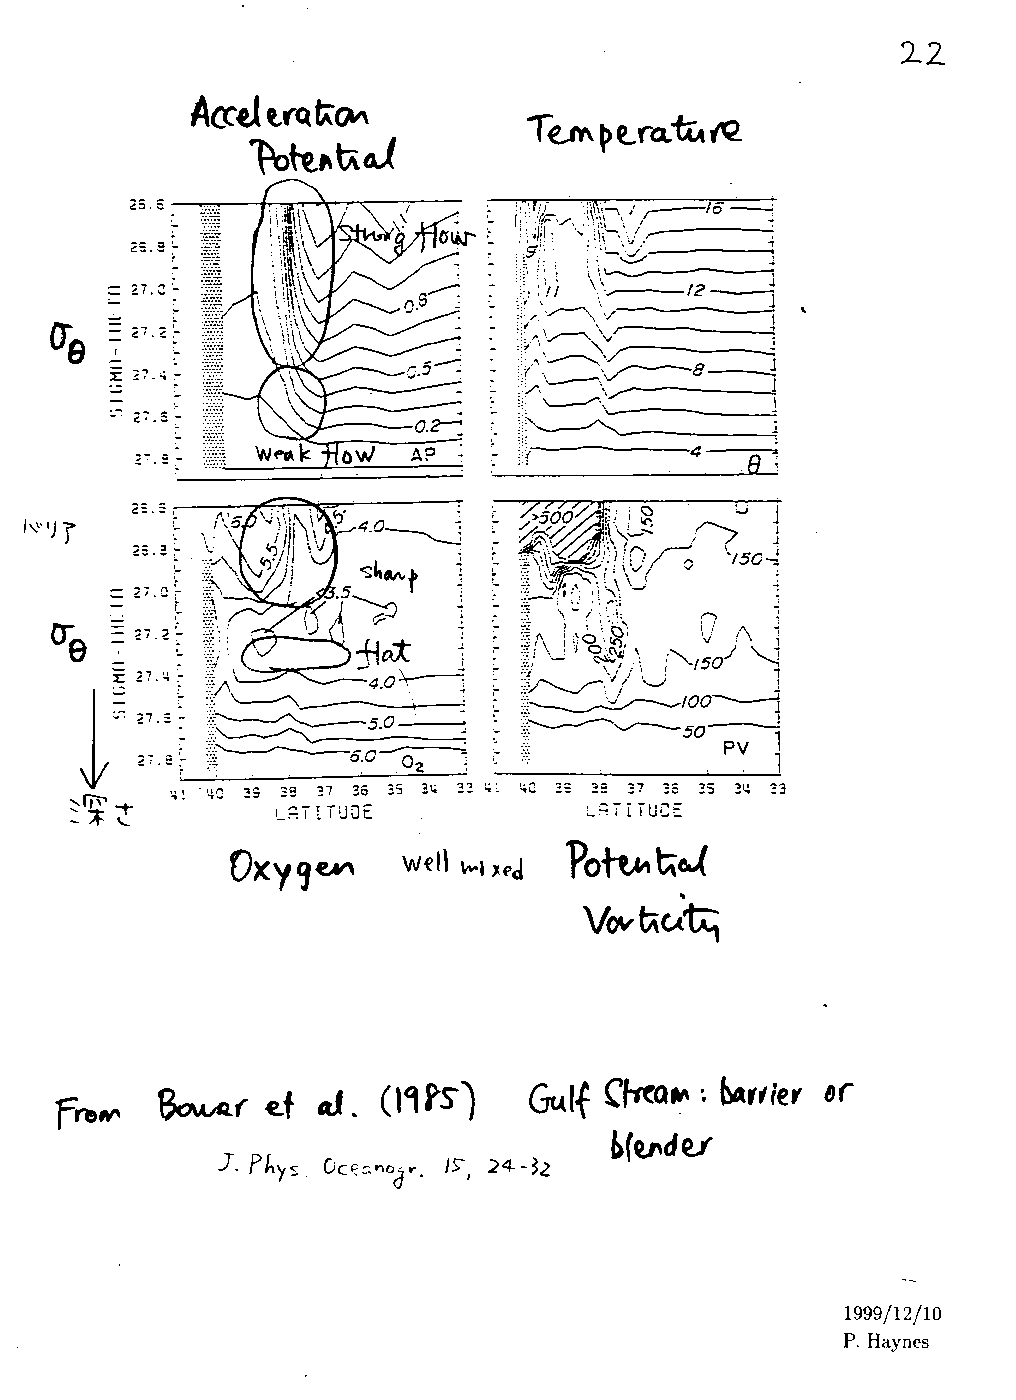 22
Acceleration
Potential
Temperature
26.6
26.8
27.0
27.2
27.4
27.6
27.8
σθ
SIGMA-THETA
Strong flow
0.8
0.5
0.2
Weak flow
AP
16
11
12
8
4
θ
バリア
26.6
26.8
27.0
27.2
27.4
27.6
27.8
σθ
SIGMA-THETA
深さ
5.0
5.5
4.0
sharp
3.5
flat
4.0
5.0
6.0
O₂
>500
150
150
250
150
100
50
PV
41 40 39 38 37 36 35 34 33
41 40 39 38 37 36 35 34 33
LATITUDE
LATITUDE
Oxygen
Well mixed
Potential
Vorticity
From Bower et al. (1985) Gulf Stream: barrier or
blender
J. Phys. Oceanogr. 15, 24-32
1999/12/10
P. Haynes